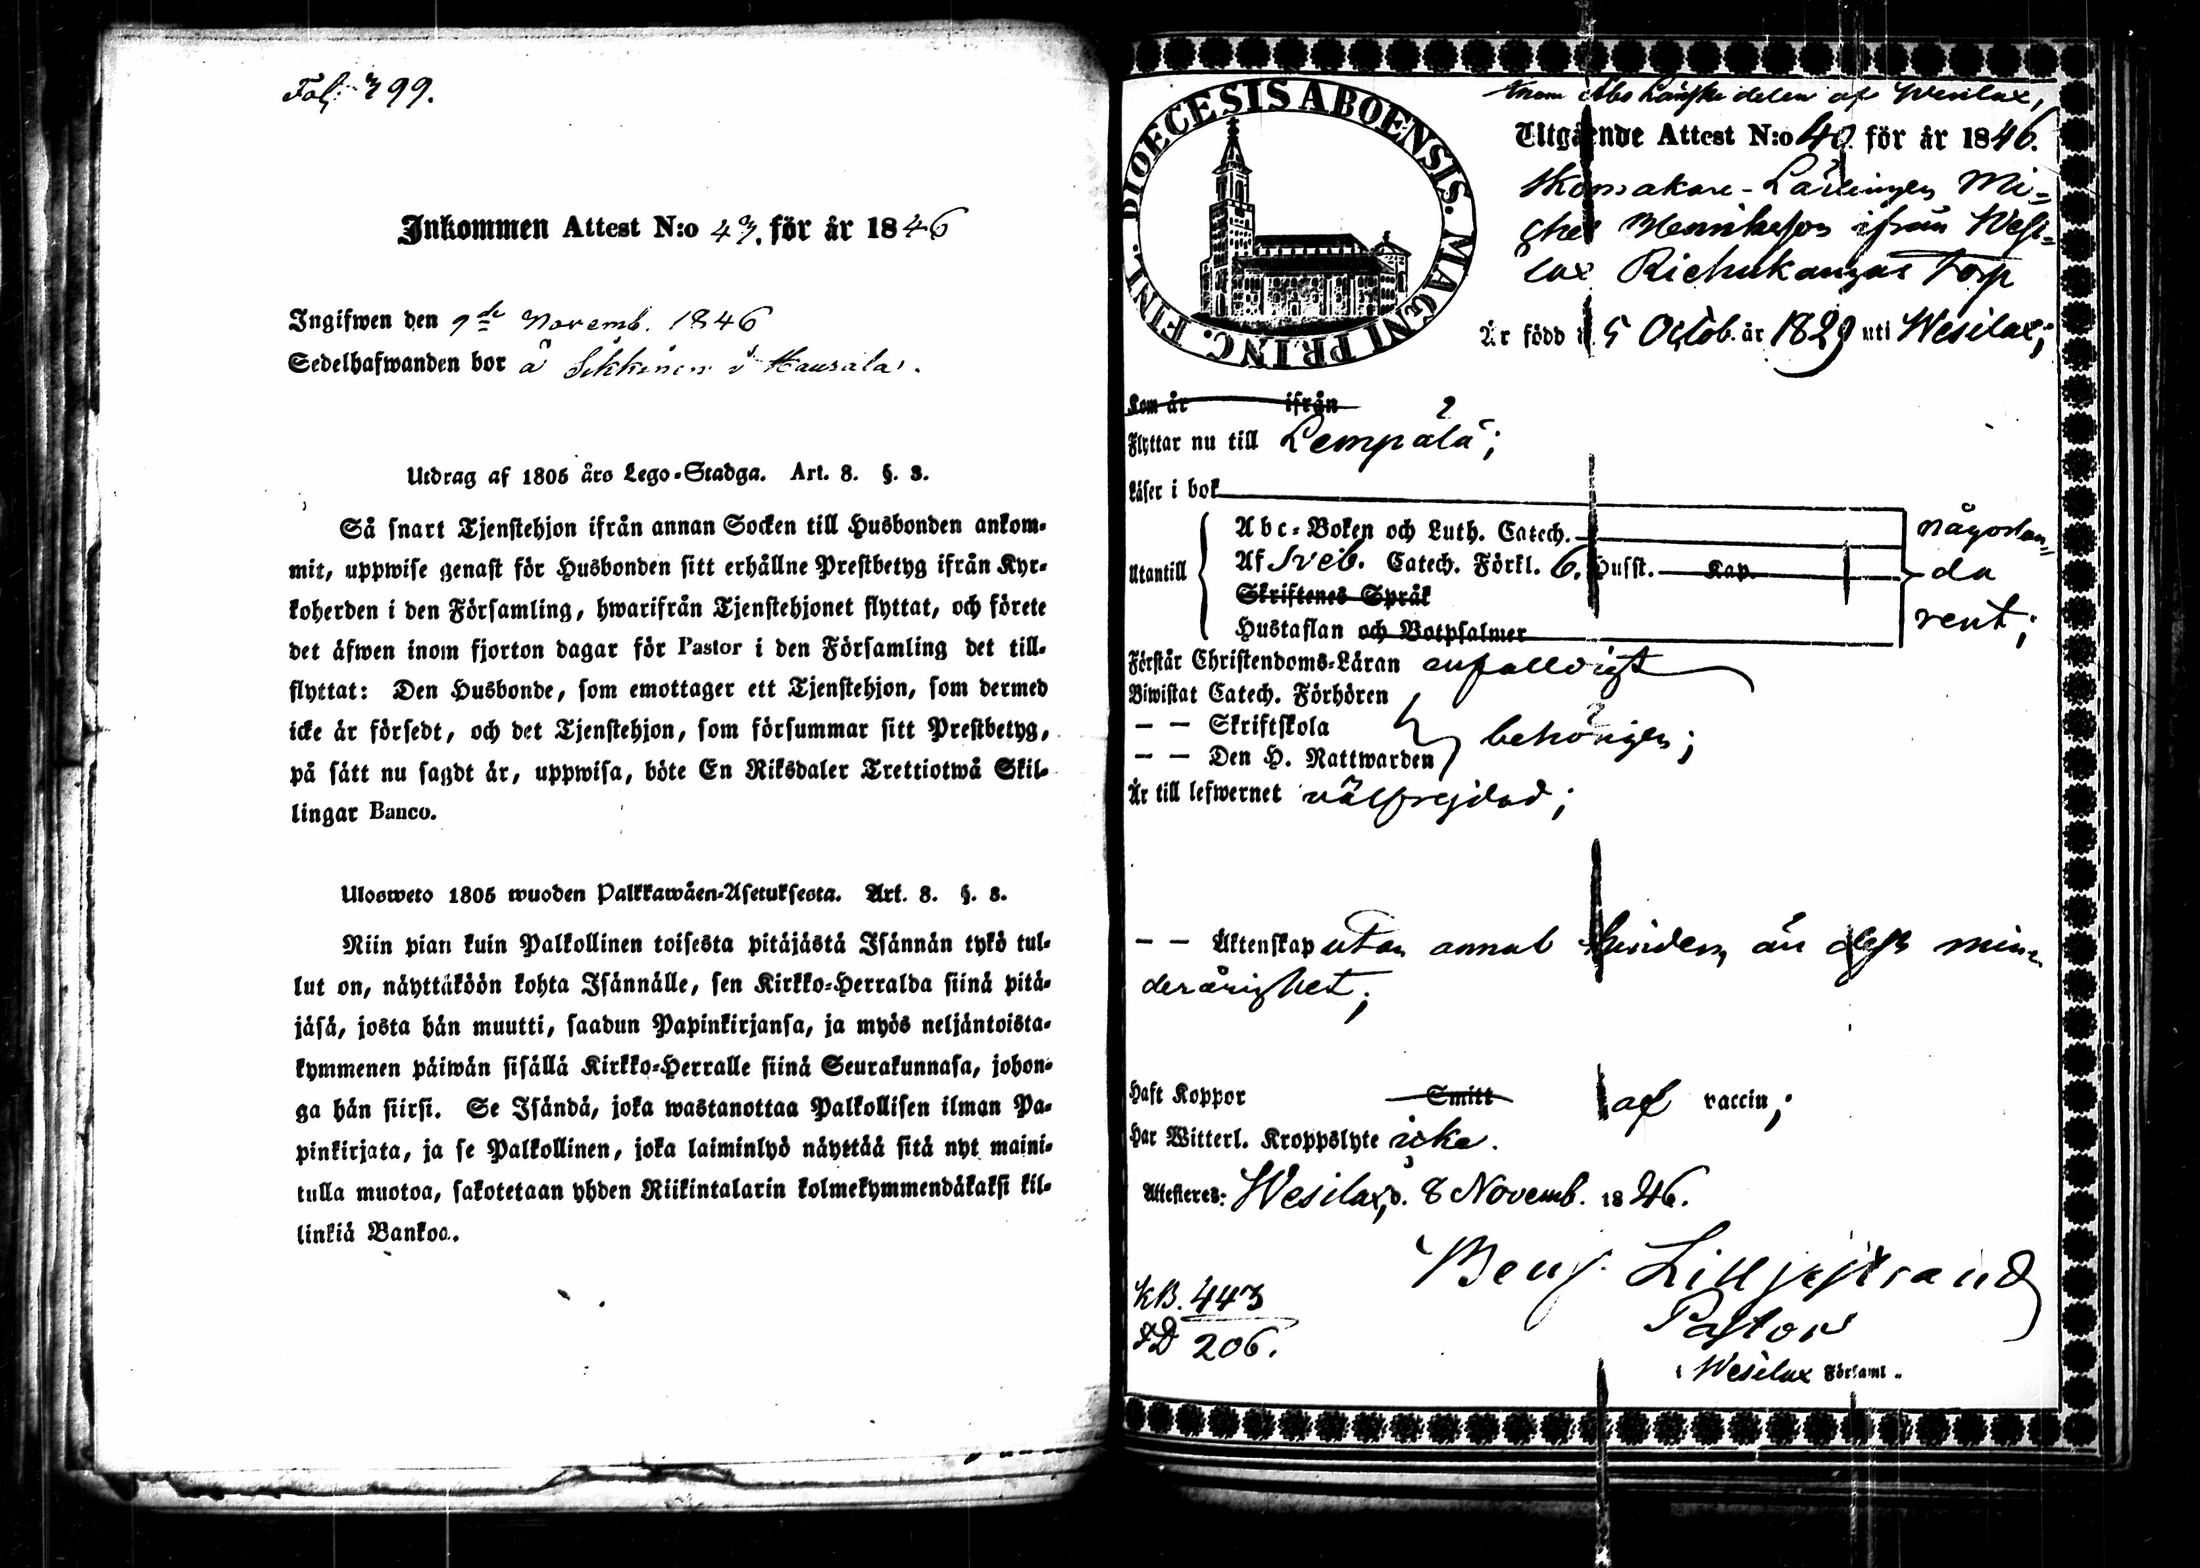 Fol: 399.
Inkommen Attest N:o 43. för år 1846
Ingifwen den 9de Novemb. 1846
Sedelhafwanden bor å Sikkinen i Hauralas.
Utdrag af 1805 års Lego-Stadga. Art. 8. §. 3.
Så snart Tjenstehjon ifrån annan Socken till Husbonden ankom-
mit, uppwise genast för Husbonden sitt erhållne Prestbetyg ifrån Kyr-
koherden i den Församling, hwarifrån Tjenstehjonet flyttat, och förete
det äfwen inom fjorton dagar för Pastor i den Församling det till-
flyttat: Den Husbonde, som emottager ett Tjenstehjon, som dermed
icke är försedt, och det Tjenstehjon, som försummar sitt Prestbetyg,
på sätt nu sagdt är, uppwisa, böte En Riksdaler Trettiotwå Skil-
lingar Banco.
Ulosweto 1805 wuoden Palkkawäen-Asetuksesta. Art. 8. §. 3.
Niin pian kuin Palkollinen toisesta pitäjästä Isännän tykö tul-
lut on, näyttäköön kohta Isännälle, sen Kirkko-Herralda siinä pitä-
jäsä, josta hän muutti, saadun Papinkirjansa, ja myös neljäntoista-
kymmenen päiwän sisällä Kirkko-Herralle siinä Seurakunnasa, johon-
ga hän siirsi. Se Isändä, joka wastanottaa Palkollisen ilman Pa-
pinkirjata, ja se Palkollinen, joka laiminlyö näyttää sitä nyt maini-
tulla muotoa, sakotetaan yhden Riikintalarin kolmekymmendäkaksi kil-
linkiä Bankoa.
DIOECESIS ABOENSIS. MAGNI PRINC. FINL.
Inom Åbo Länska delen af Wesilax,
Utgående Attest N:o 40. för år 1846.
Skomakare-Lärlingen Mi-
chel Henriksson ifrån Wesi-
lax Riehukangas Torp
Är född d. 5 Octob. år 1829 uti Wesilax;
Kom år ifrån
Flyttar nu till Lempälä;
Läser i bok
Utantill
Abc-Boken och Luth. Catech.
Af Sveb. Catech. Förkl. 6. Husst. Kap.
Skriftenes Språk
Hustaflan och Botpsalmer
någorlun-
da
rent;
Förstår Christendoms-Läran enfaldigt
Biwistat Catech. Förhören
— — Skriftskola
— — Den H. Nattwarden
behörigen;
Är till lefwernet välfrejdad;
— — Äktenskap utan annat hinder, än dess min-
derårighet;
Haft Koppor Smitt af vaccin;
Har Witterl. Kroppslyte icke.
Attesteres: Wesilax, d. 8 Novemb. 1846.
Benj. Lilljestrand
Pastor
i Wesilax Församl.
KB. 443
DD 206.